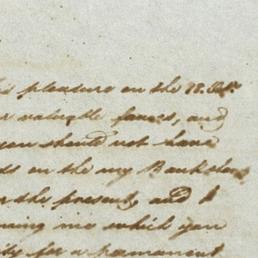 pleasure on the 18. Octr.
valuable favors, and
you should not have
on the my
the present, and I
me which you
for a permanent